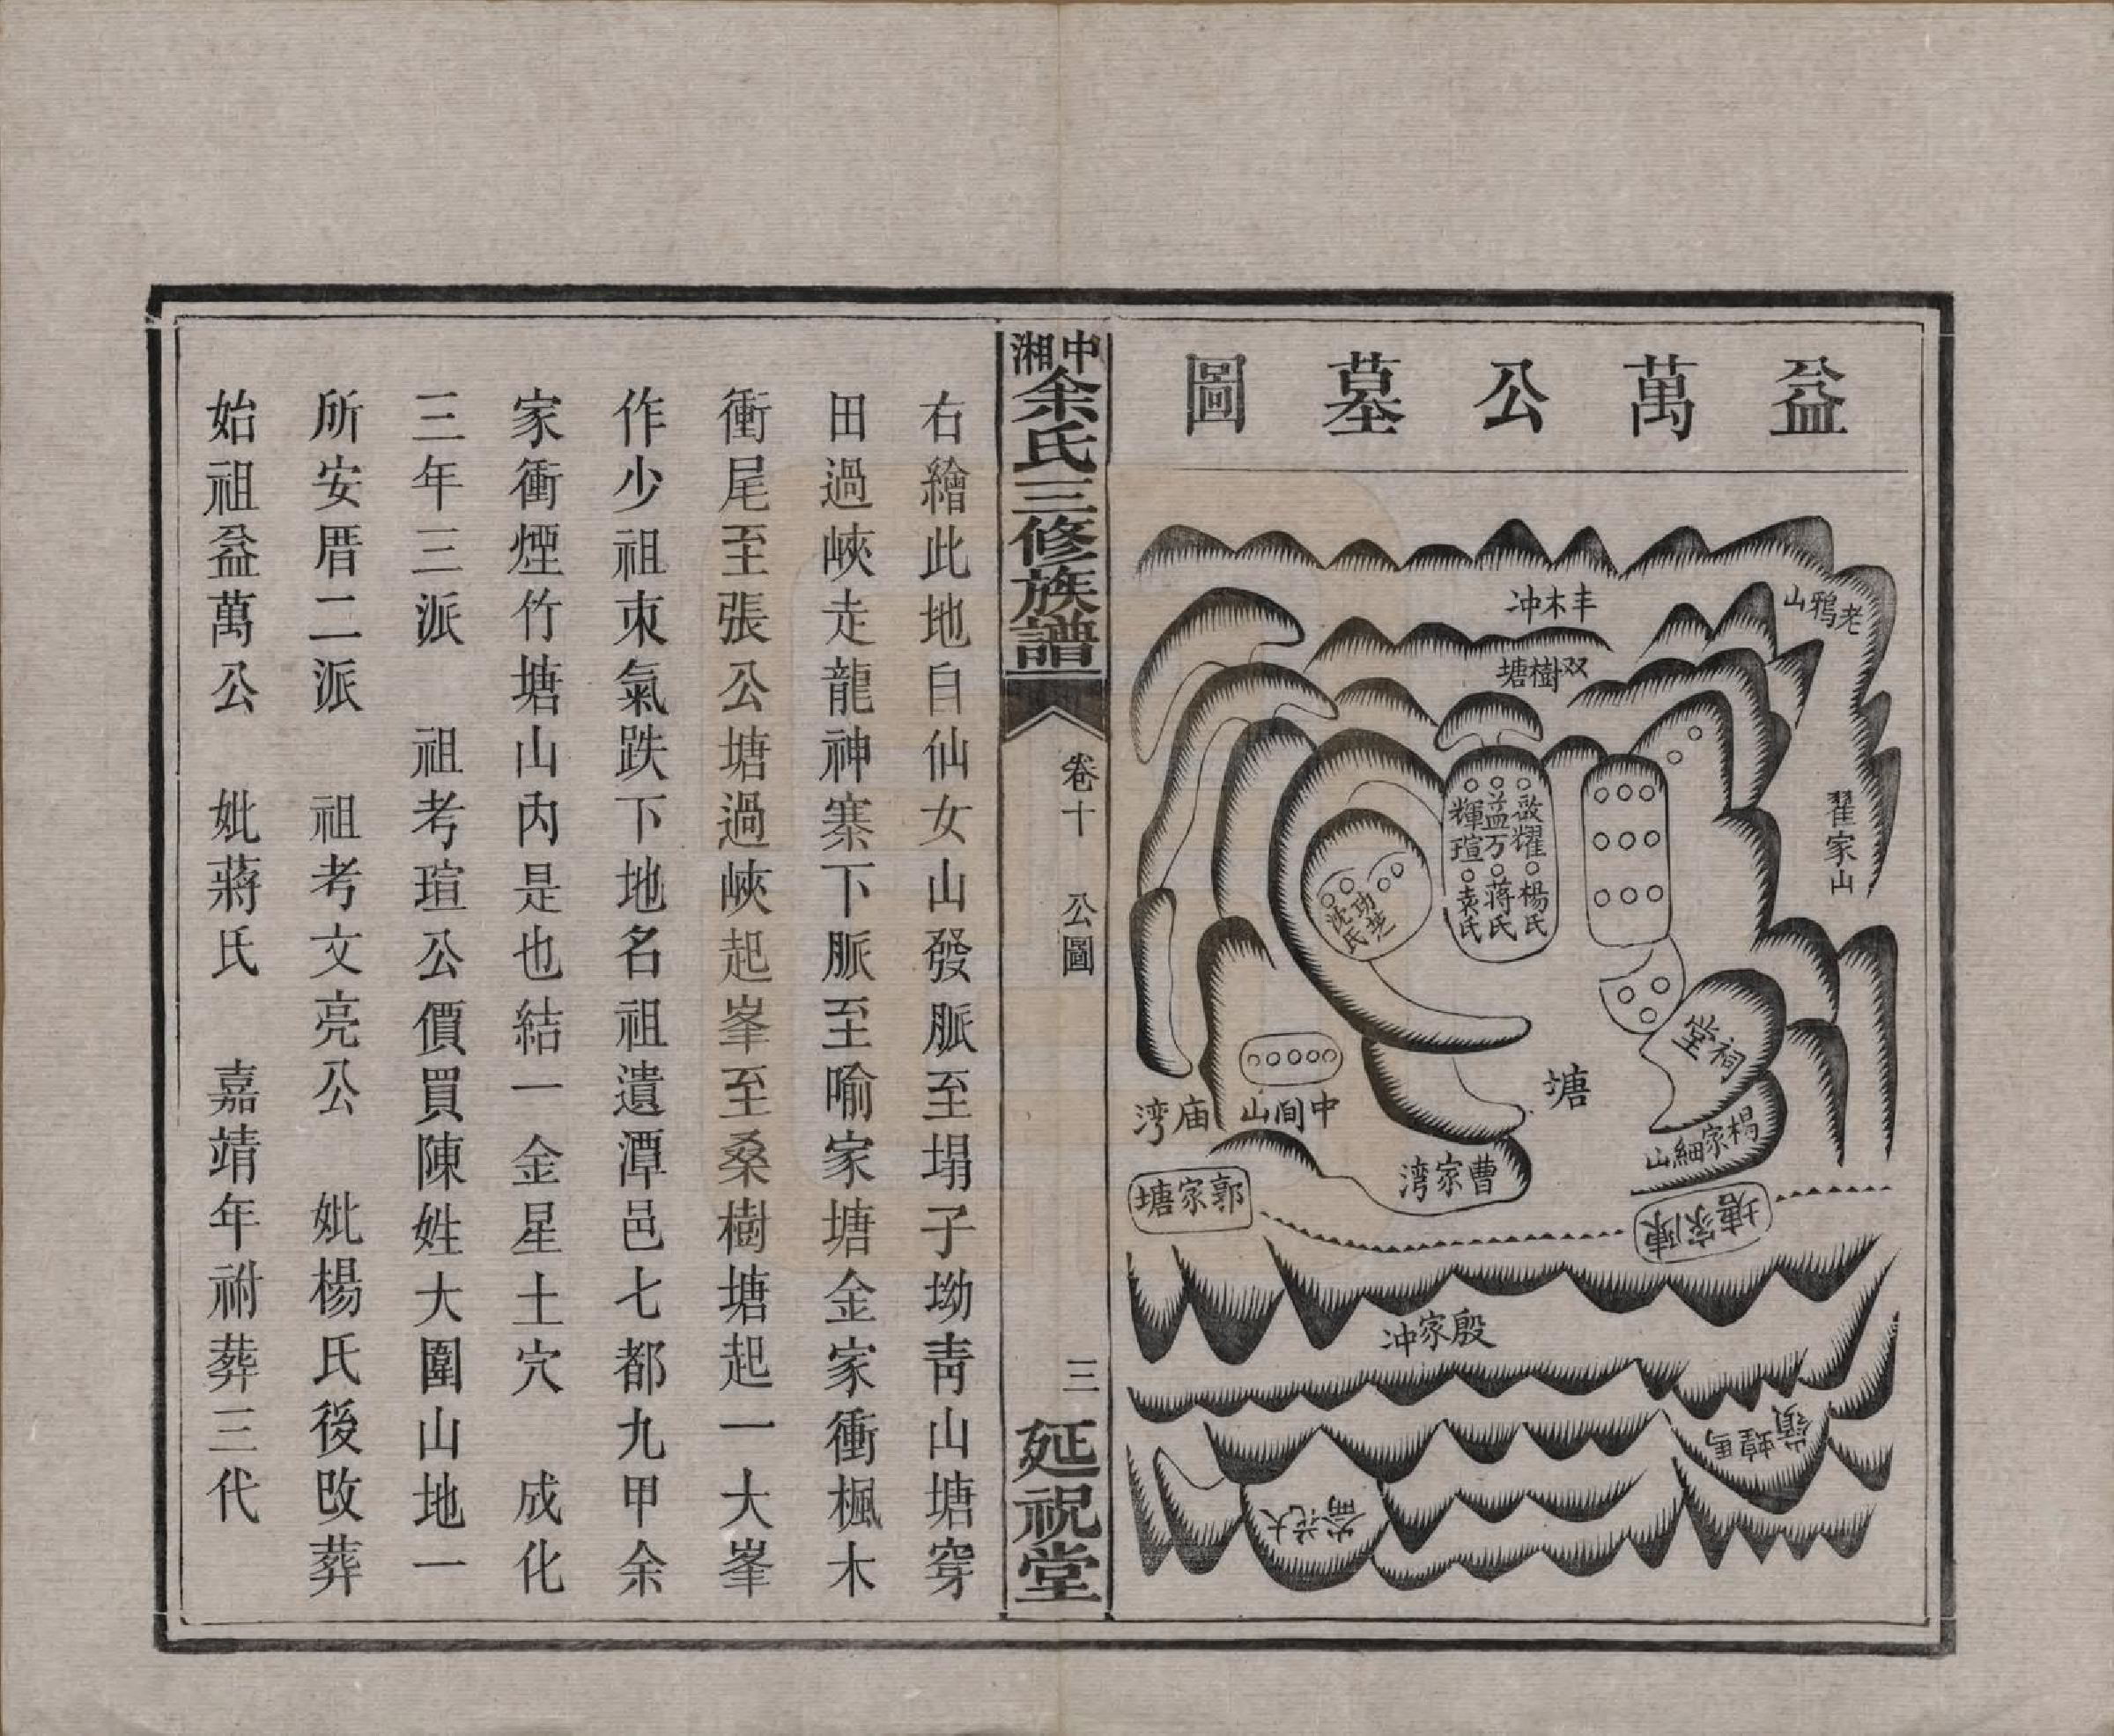 益萬公墓圖
老鴉山
丰木冲
双樹塘
翟家山
啟耀 楊氏
益万 蒋氏
輝瑄 袁氏
功
沈氏
祠堂
塘
楊家細山
中间山
庙湾
曹家湾
郭家塘
陳家塘
殷家冲
馬蝗嶺
大花
中湘余氏三修族譜
卷十 公圖
三
延祝堂
右繪此地自仙女山發脈至塌子坳靑山塘穿
田過峽走龍神寨下脈至喻家塘金家衝楓木
衝尾至張公塘過峽起峯至桑樹塘起一大峯
作少祖束氣跌下地名祖遺潭邑七都九甲余
家衝煙竹塘山內是也結一金星土穴 成化
三年三派 祖考瑄公價買陳姓大圍山地一
所安厝二派 祖考文亮公 妣楊氏後改葬
始祖益萬公 妣蔣氏 嘉靖年祔葬三代